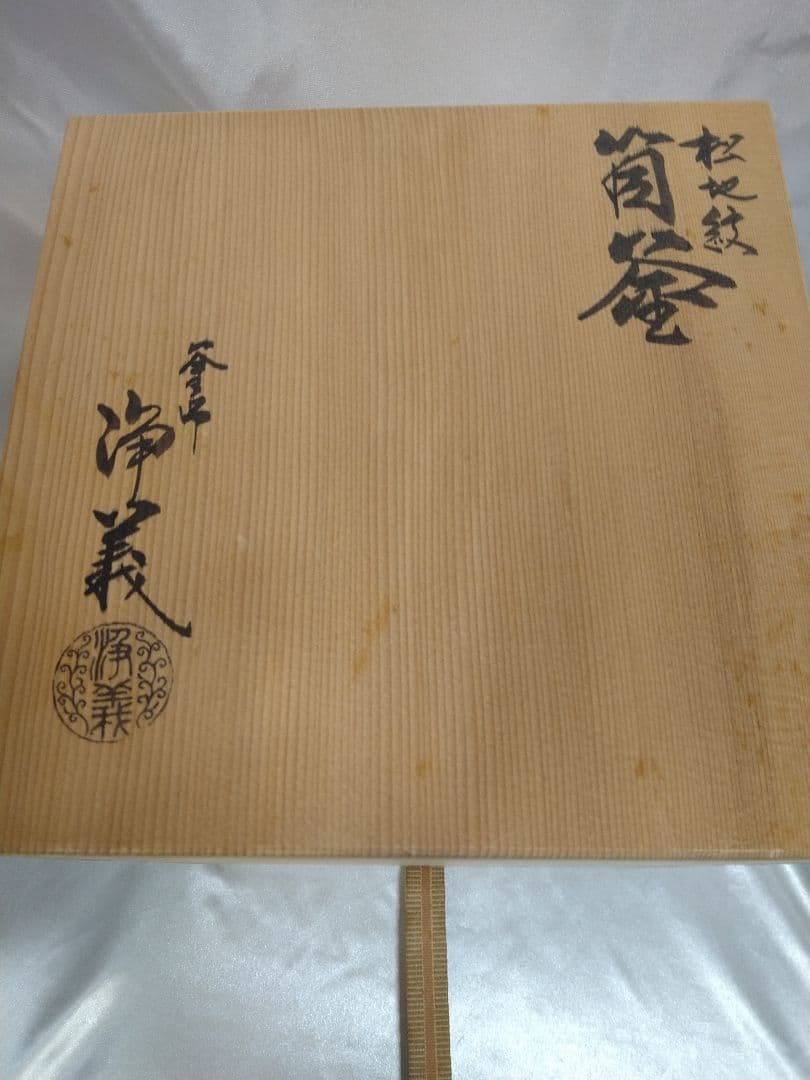 松地紋
筒釜
釜師
浄義
浄義